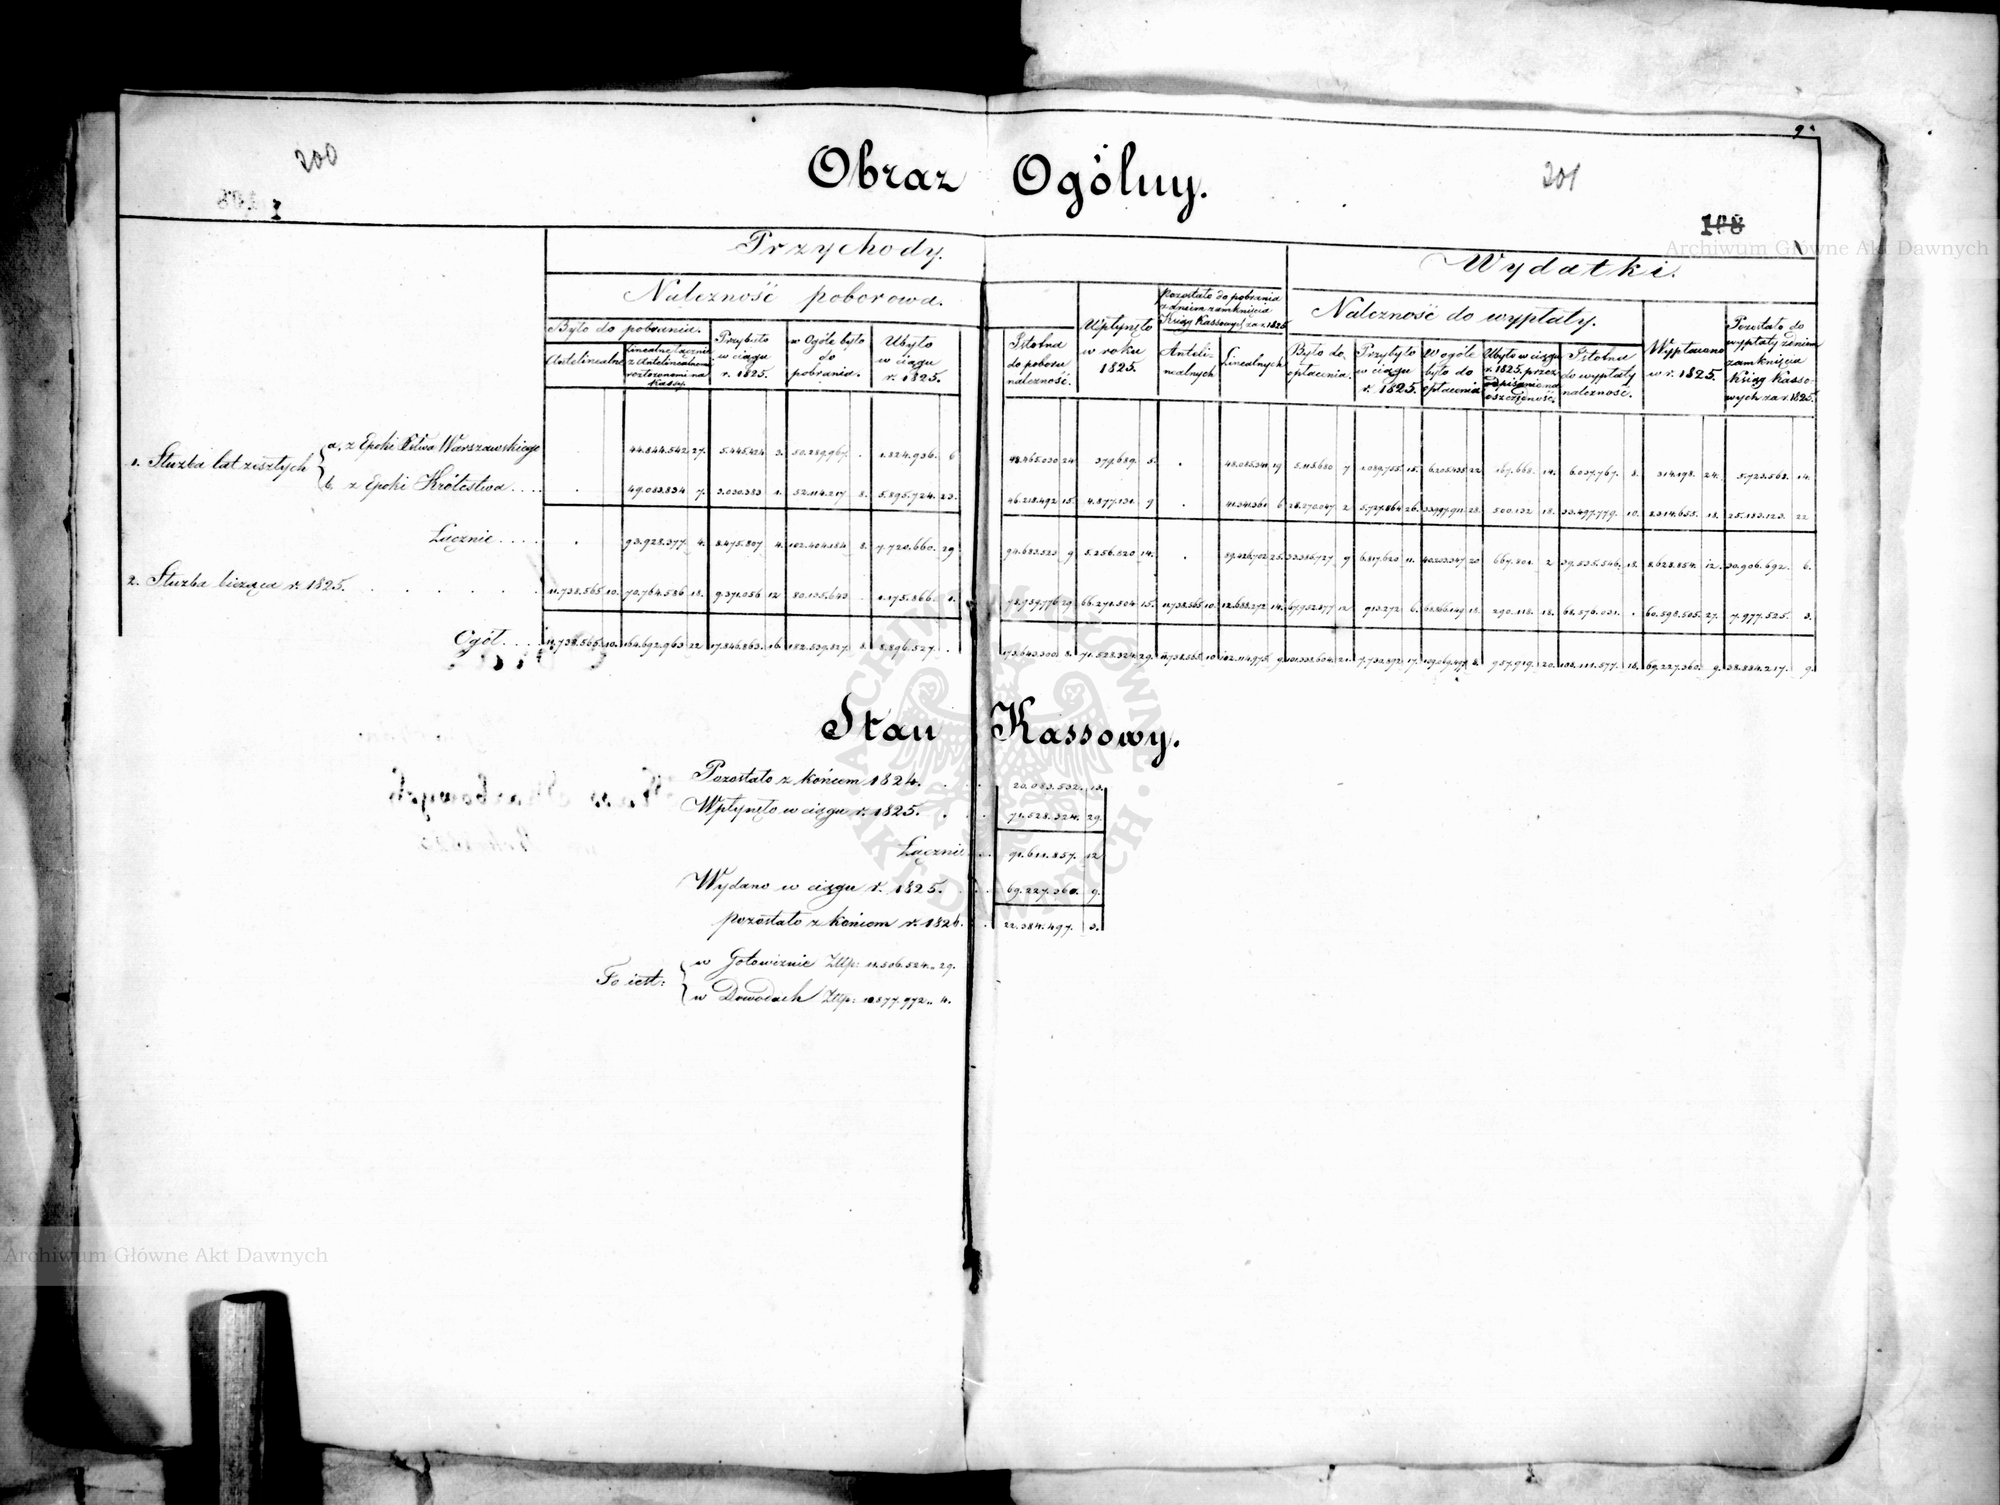 200
201
9.
108
Archiwum Główne Akt Dawnych
Obraz Ogólny.
Przychody.
Wydatki.
Należność poborowa.
Wpłynęło w roku 1825.
Pozostało do pobrania z dniem zamknięcia Ksiąg Kassowych za r. 1825
Należność do wypłaty.
Wypłacono w r. 1825.
Pozostało do wypłaty z dniem zamknięcia Ksiąg Kassowych za r. 1825.
Było do pobrania.
Przybyło w ciągu r. 1825.
w Ogóle było do pobrania.
Ubyło w ciągu r. 1825.
Istotna do poboru należność.
Anteli-nealnych
Linealnych
Było do opłacenia.
Przybyło w ciągu r. 1825.
W ogóle było do opłacenia
Ubyło w ciągu r. 1825. przez odpisanie na oszczędność.
Istotna do wypłaty należność.
Antelinealne
Linealne łącznie z Antelinealnemi rozłożonemi na Kassy.
1. Służba lat zeszłych
a, z Epoki Xstwa Warszawskiego . 44.844.542 27. 5.445.424 3. 50.289.967 . 1.824.936. 6 48.465.030 24 379.689. 5. . 48.085.341 19 5.115.680 7 1.089.755. 15. 6.205.435 22 167.668. 14. 6.037.767. 8. 314.198. 24. 5.723.568. 14.
b. z Epoki Królestwa . . . . . 49.083.834 7. 3.030.383 1. 52.114.217 8. 5.895.724. 23. 46.218.492 15. 4.877.131. 9 . 41.341.361 6 28.270.047. 2 5.727.864 26. 33.997.911 28. 500.132 18. 33.497.779. 10. 8.314.655. 18. 25.183.123. 22
Łącznie . . . . . 93.928.377. 4. 8.475.807 4. 102.404.184 8. 7.720.660. 29 94.683.523 9 5.256.820 14. . 89.426.702 25. 33.385.727 9 6.817.620 11. 40.203.347 20 667.801. 2 39.535.546. 18. 8.628.854. 12. 30.906.692. 6.
2. Służba bieżąca r. 1825. . . . . . . 11.738.565 10. 70.764.586 18. 9.371.056 12 80.135.643 . 1.175.866. 1. 78.959.776 29 66.271.504 15. 11.738.565 10. 12.688.272 14. 67.952.877 12 913.272 6. 68.866.149 18. 290.118. 18. 68.576.031. . 60.598.505. 27. 7.977.525. 3.
Ogół . . . . 11.738.565. 10. 164.692.963 22 17.846.863. 16. 182.539.827 8. 8.896.527. . 173.643.300 8. 71.528.324. 29. 11.738.565 10 102.114.975 9 101.338.604. 21. 7.730.892 17. 109.069.497 8. 957.919. 20. 108.111.577. 18. 69.227.360. 9. 38.884.217. 9.
Stan Kassowy.
Pozostało z końcem 1824. . . 20.083.532. 13.
Wpłynęło w ciągu r. 1825. . . 71.528.324. 29.
Łącznie . . 91.611.857. 12
Wydano w ciągu r. 1825. . . 69.227.360. 9.
pozostało z końcem r. 1826. . 22.384.497. 3.
To iest:
w Gotowiznie Złtp: 11.506.524.. 29.
w Dowodach Złtp: 10877.972.. 4.
ARCHIWUM GŁÓWNE AKT DAWNYCH
Archiwum Główne Akt Dawnych